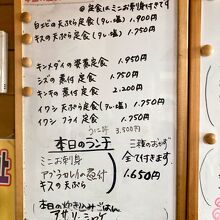 ◎定食はミニお刺身付きです
白エビの天ぷら定食(タレ.塩) 1.900円
キスの天ぷら定食(タレ.塩) 1.750円
キンメダイの煮付定食 1.950円
シズの煮付定食 1.750円
キンキの煮付定食 2.000円
イワシ天ぷら定食(タレ.塩) 1.750円
イワシフライ定食 1.750円
うに丼 3.500円
本日のランチ
ミニお刺身
アブラカレイの煮付
キスの天ぷら
三種のおかず
全て付きます
1.650円
本日の炊き込みごはん